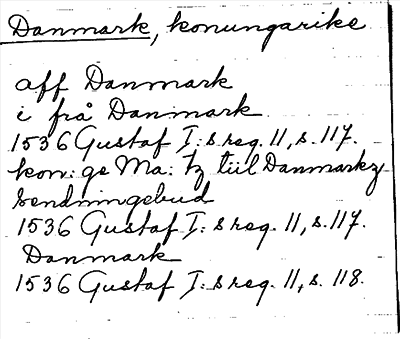 Danmark, konungarike
aff Danmark
i frå Danmark
1536 Gustaf I:s reg. 11, s. 117.
kon: ge Ma: tz tiil Danmarkz
sendningebud
1536 Gustaf I: s reg. 11, s. 117.
Danmark
1536 Gustaf I: s reg. 11, s. 118.